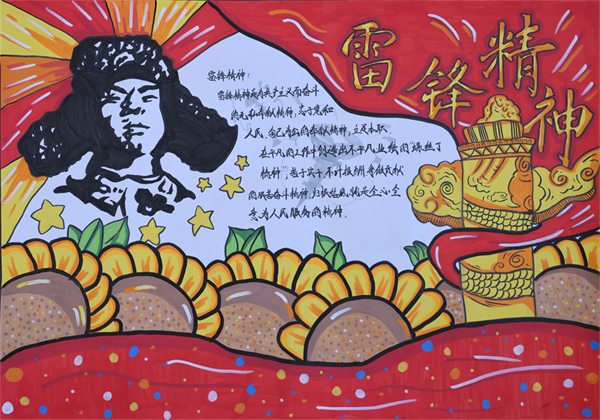 雷锋精神
雷锋精神：
雷锋精神是为共产主义而奋斗
的无私奉献精神，忠于党和
人民、舍己为公的奉献精神，立足本职、
在平凡的工作中创造出不平凡业绩的“螺丝丁
精神”，苦干实干不计报酬，争做贡献
的艰苦奋斗精神，归根结底，就是全心全
意为人民服务的精神．